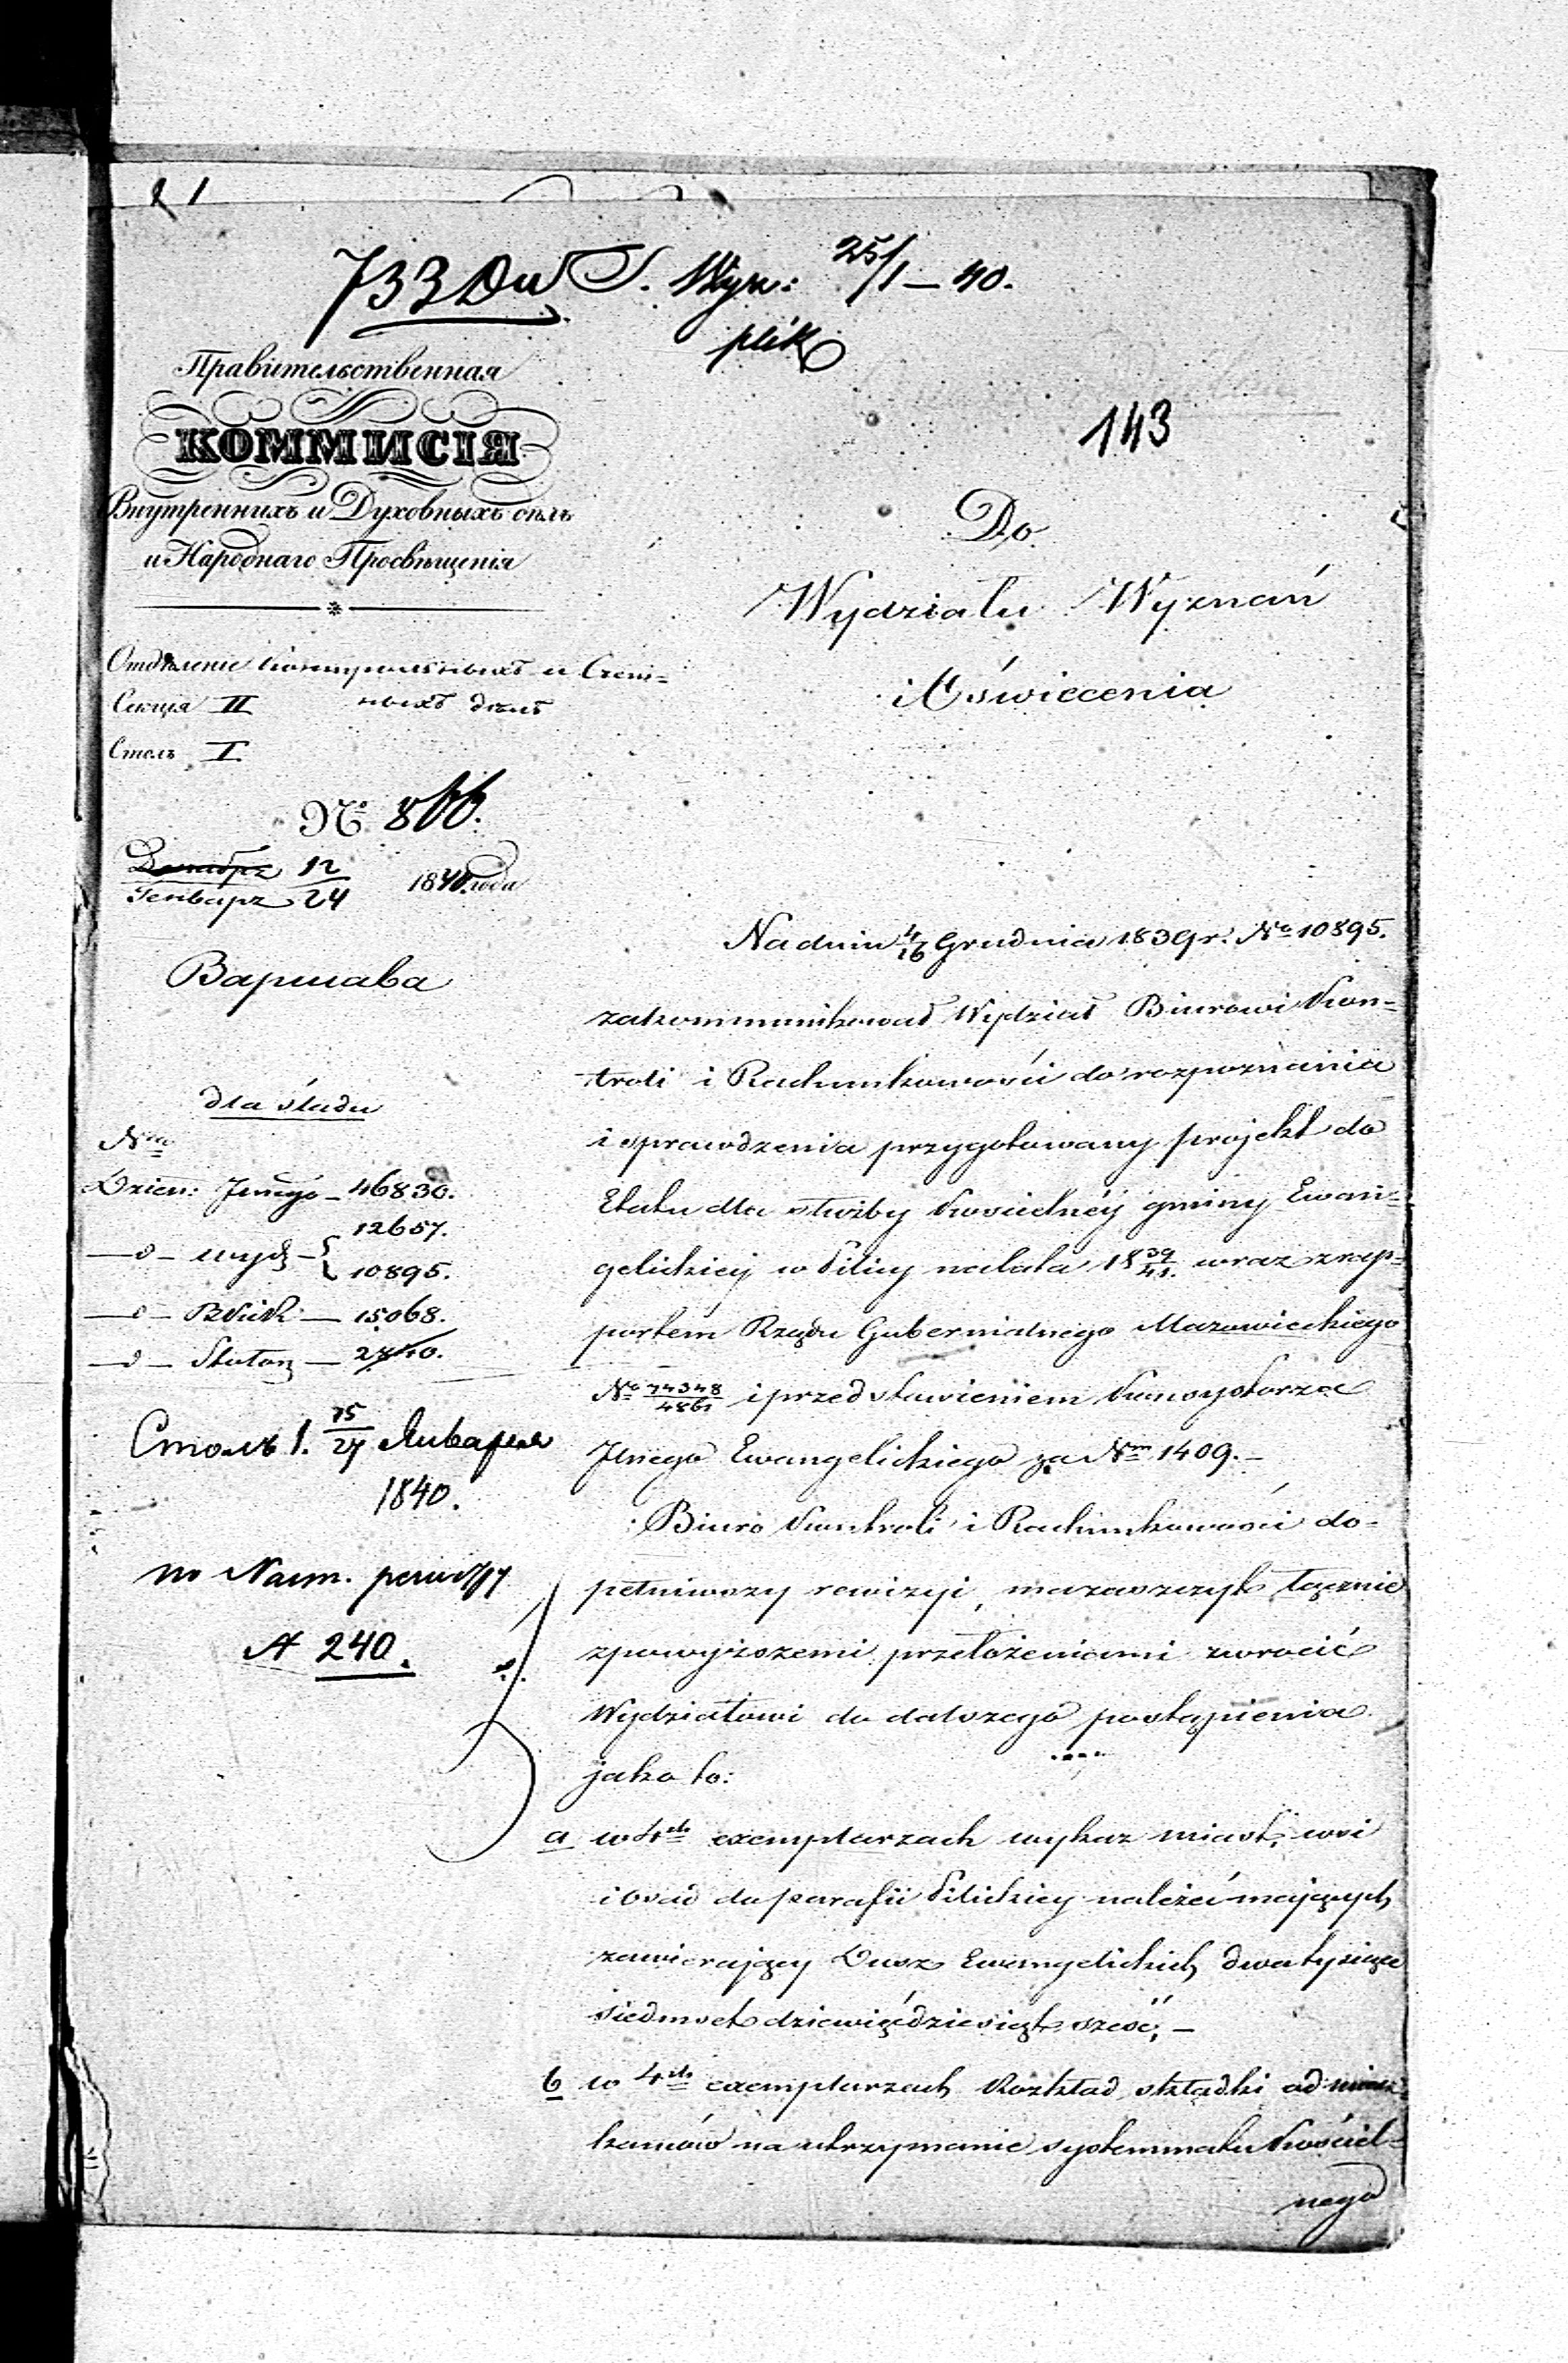 21
733 Dw S. Wyzn: 25/1 – 40.
plik
143
Правительственная
КОММИСІЯ
Внутреннихъ и Духовныхъ дѣлъ
и Народнаго Просвѣщенія
Отдѣленіе Контрольныхъ и Счет=
ныхъ дѣлъ
Секція II
Столъ I.
№ 866.
Декабря 12
Генваря 24 1840 года
Варшава
dla śladu
Nra
Dzien: Jlnego – 46830.
–d– wydz – { 12657.
10895.
–d– – 15068.
–d– – 2740.
Столъ 1. 15/27 Января
1840.
A 240.
Do
Wydziału Wyznań
i Oświecenia
Na dniu 4/16 Grudnia 1839 r. No 10895.
zakommunikował Wydział Biurowi Kon=
troli i Rachunkowości do rozpoznania
i sprawdzenia przygotowany projekt do
Etatu dla służby Kościelnéy gminy Ewan=
gelickiej w Pilicy na lata 18 39/41. wraz z rap=
portem Rządu Gubernialnego Mazowieckiego
No 74348/4861 i przedstawieniem Konsystorza
Jlnego Ewangelickiego za Nrm 1409. –
Biuro Kontroli i Rachunkowości do=
pełniwszy rewizyi, ma zaszczyt łącznie
z powyższemi przełożeniami zwrócić
Wydziałowi do dalszego postąpienia
jako to:
a w 4ch exemplarzach wykaz miast, wsi
i osad do parafii Pilickiey należeć mających
zawierający Dusz Ewangelickich dwa tysiące
siedmset dziewięćdziesiąt sześć; –
b w 4ch exemplarzach Rozkład składki od miesz=
kańców na utrzymanie systemmatu Kościel=
nego